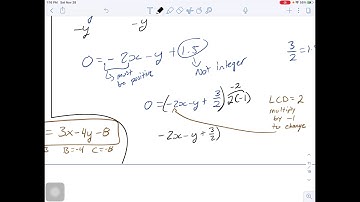 1:16 PM Sat Nov 28
-y -y
0 = -2x - y + 1.5
must be positive
Not integer
3/2 = 1.
0 = (-2x - y + 3/2) 2(-1) -2
LCD = 2
multiply
by -1
to change
= 3x - 4y - 8
B=-4 C=-8
-2x - y + 3/2)